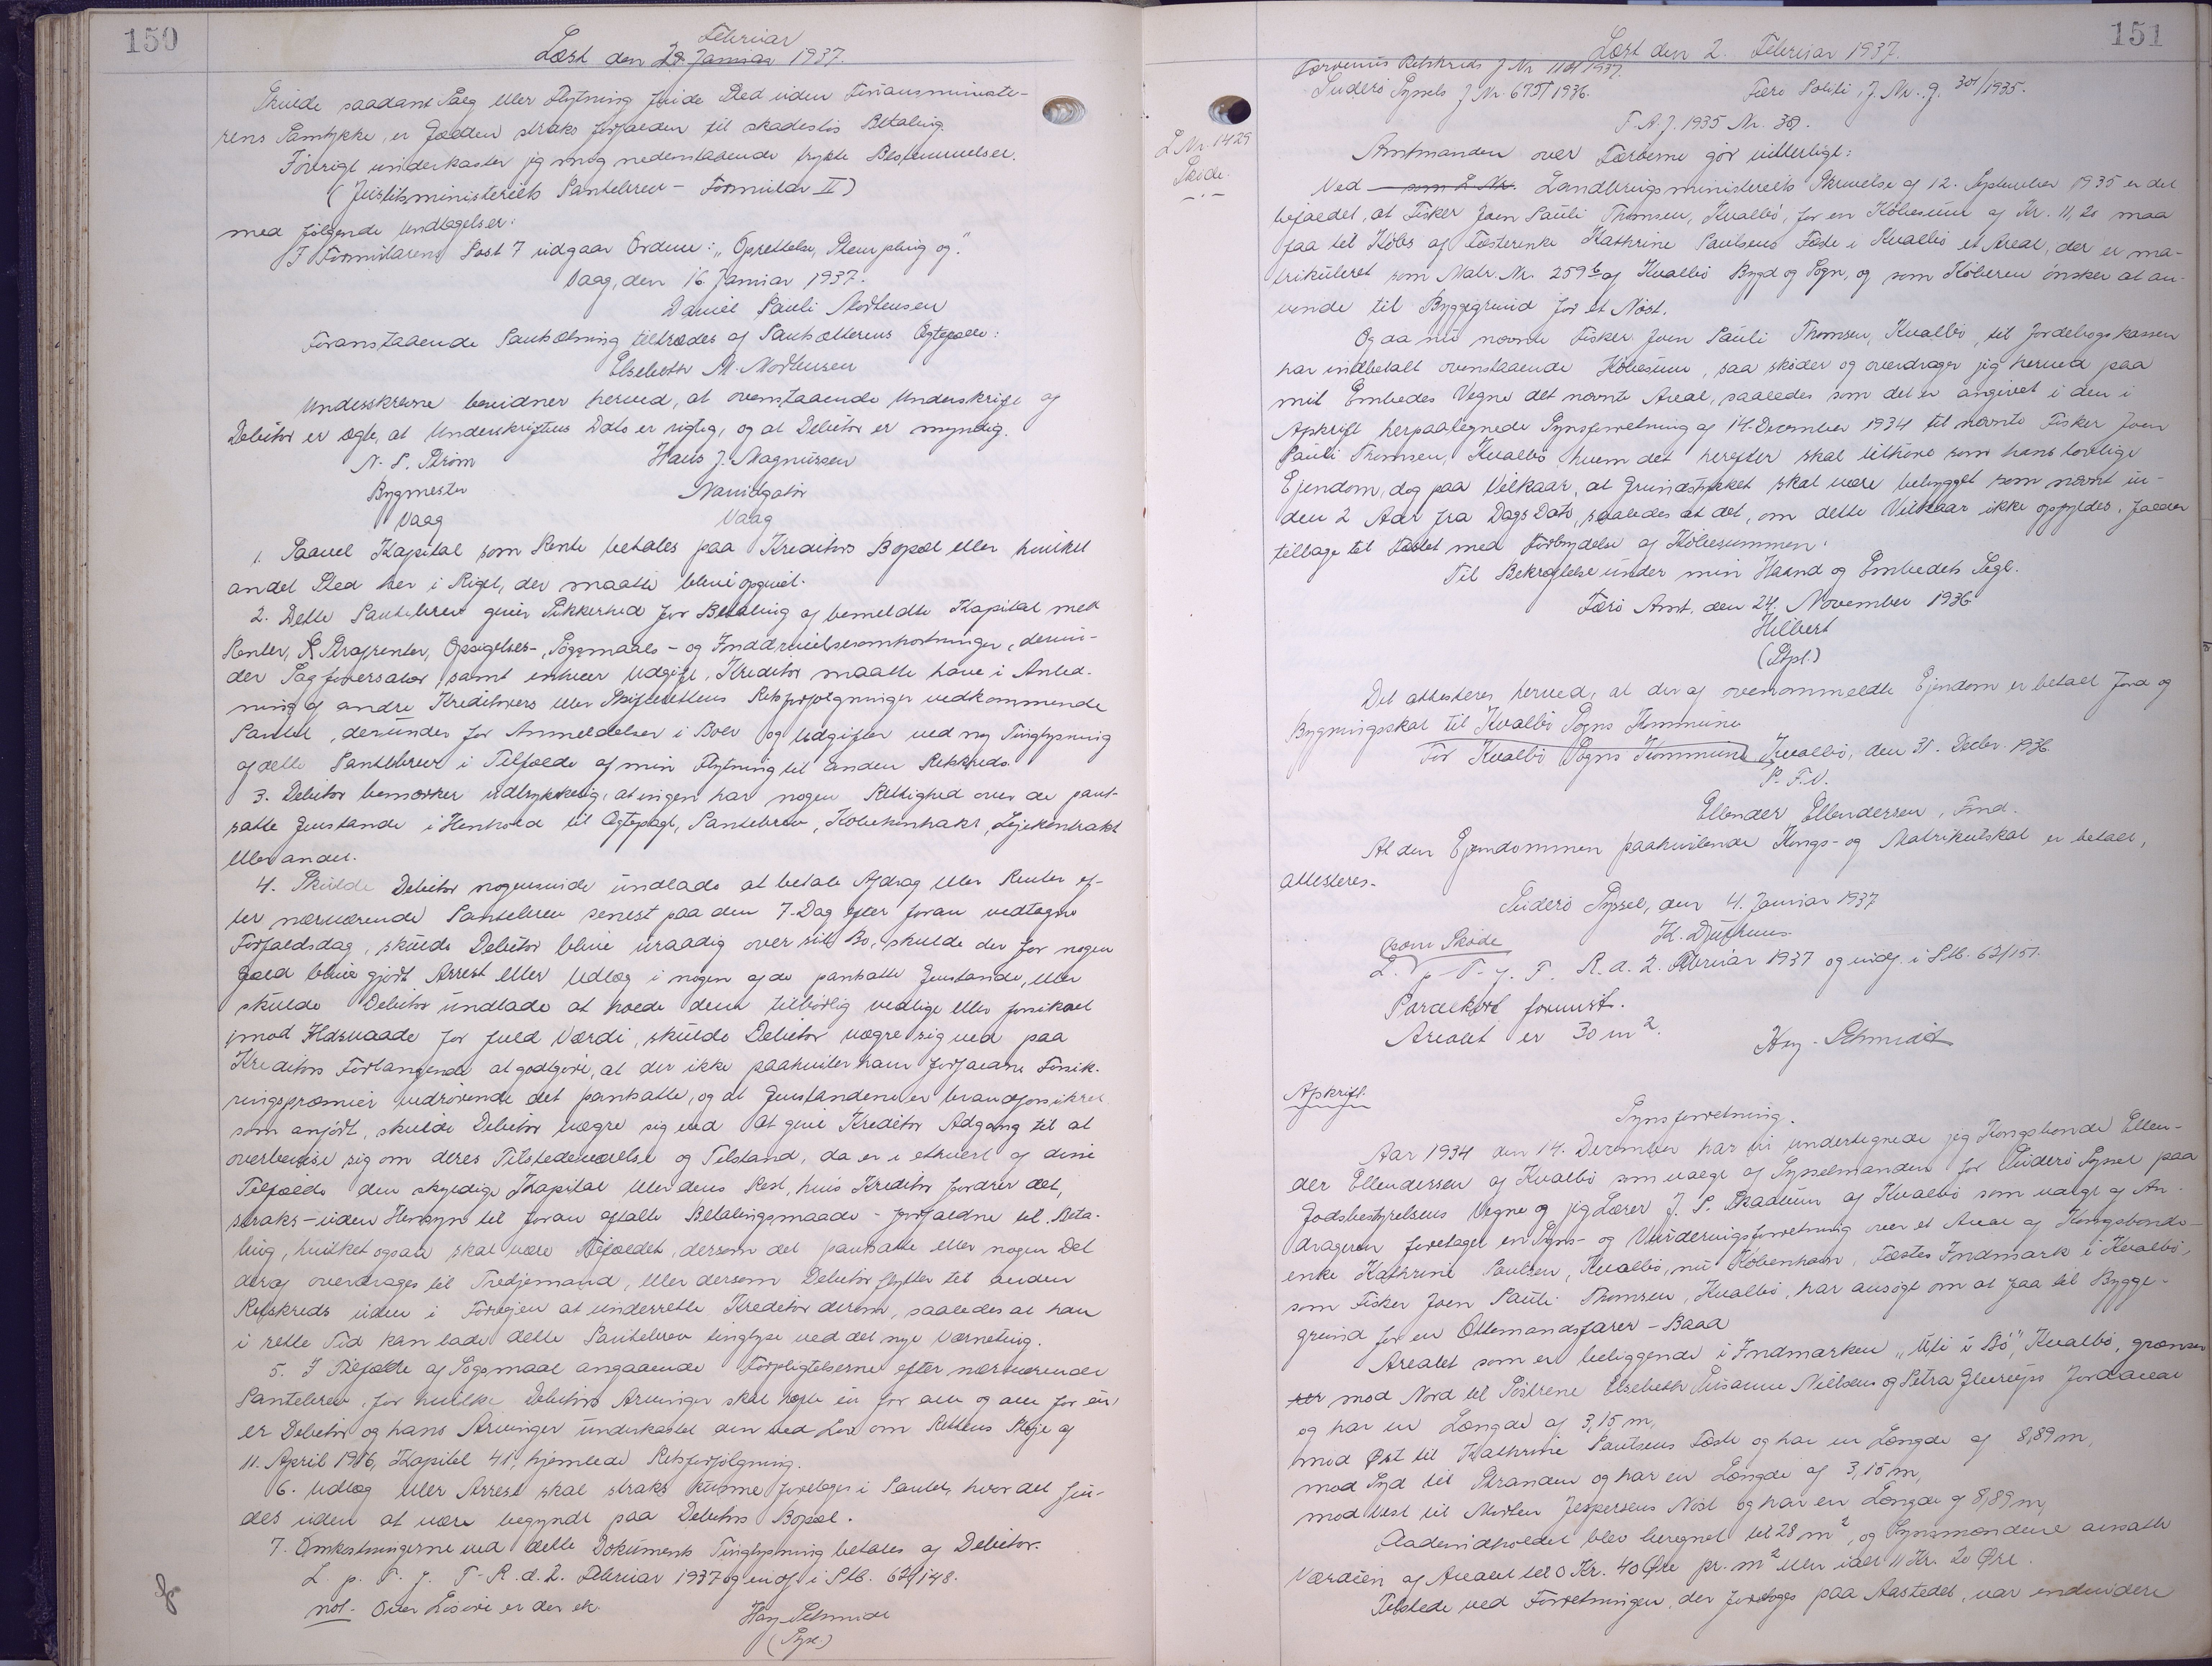 150
Februar
Læst den 29. Januar 1937.
Skulde saadant Salg eller Flytning finde Sted uden Finansministe-
rens Samtykke, er Gælden straks forfalden til skadesløs Betaling.
Forøvrigt underkaster jeg mig nedenstaaende trykte Bestemmelser.
(Justitsministeriets Pantebrev - Formular II)
med følgende Undtagelser:
I Formularens Post 7 udgaar Ordene: "Oprettelse, Stempling og".
Vaag, den 16. Januar 1937.
Daniel Pauli Mortensen
Foranstaaende Pantsætning tiltrædes af Pantsætterens Ægtefælle:
Elsebeth M. Mortensen
Underskrevne bevidner herved, at ovenstaaende Underskrift og
Debitor er ægte, at Underskriftens Dato er rigtig, og at Debitor er myndig.
N. P. Strøm Hans J. Magnussen
Bygmester Navidgatør
Vaag Vaag
1. Saavel Kapital som Rente betales paa Kreditors Bopæl eller hvilket
andet Sted her i Riget, der maatte blive opgivet.
2. Dette Pantebrev giver Sikkerhed for Betaling af bemeldte Kapital med
Renter, Strafrenter, Opsigelses-, Søgsmaals- og Inddrivelsesomkostninger, derun-
der Sagførersalær, samt enhver Udgift, Kreditor maatte have i Anled-
ning af andre Kreditorers eller Skifterettens Retsforfølgninger vedkommende
Pantet, derunder for Anmeldelser i Boer og Udgifter ved ny Tinglysning
af dette Pantebrev i Tilfælde af min Flytning til anden Retskreds.
3. Debitor bemærker udtrykkelig, at ingen har nogen Rettighed over de pant-
satte Genstande i Henhold til Ægtepagt, Pantebrev, Købekontrakt, Lejekontrakt
eller andet.
4. Skulde Debitor nogensinde undlade at betale Afdrag eller Renter ef-
ter nærværende Pantebrev senest paa den 7. Dag efter foran vedtagne
Forfaldsdag, skulde Debitor blive uraadig over sit Bo, skulde der for nogen
Gæld blive gjort Arrest eller Udlæg i nogen af de pantsatte Genstande, eller
skulde Debitor undlade at holde dem tilbørlig vedlige eller forsikret
imod Ildsvaade for fuld Værdi, skulde Debitor vægre sig ved paa
Kreditors Forlangende at godtgøre, at der ikke paahviler ham forfaldne Forsik-
ringspræmier vedrørende det pantsatte, og at Genstandene er brandforsikret
som anført, skulde Debitor vægre sig ved at give Kreditor Adgang til at
overbevise sig om deres Tilstedeværelse og Tilstand, da er i ethvert af disse
Tilfælde den skyldige Kapital eller dens Rest, hvis Kreditor fordrer det,
straks - uden Hensyn til foran aftalte Betalingsmaade - forfalden til Beta-
ling, hvilket ogsaa skal være Tilfældet, dersom det pantsatte eller nogen Del
deraf overdrages til Tredjemand, eller dersom Debitor flytter til anden
Retskreds uden i Forvejen at underrette Kreditor derom, saaledes at han
i rette Tid kan lade dette Pantebrev tinglyse ved det nye Værneting.
5. I Tilfælde af Søgsmaal angaaende Forpligtelserne efter nærværende
Pantebrev, for hvilke Debitors Arvinger skal hæfte én for alle og alle for én,
er Debitor og hans Arvinger underkastet den ved Lov om Rettens Pleje af
11. April 1916, Kapitel 41, hjemlede Retsforfølgning.
6. Udlæg eller Arrest skal straks kunne foretages i Pantet, hvor det fin-
des uden at være begyndt paa Debitors Bopæl.
7. Omkostningerne ved dette Dokuments Tinglysning betales af Debitor.
L. p. T. f. F. R. d. 2. Februar 1937 og indf. i S.P.b. 62/148.
not. Over Lisire er der ek.
Hay-Schmidt
(Sys.)
151
Læst den 2. Februar 1937.
Færøernes Retskreds J Nr 1101/1937.
Suderø Syssels J Nr. 675/1936. Færø Politi, J. Nr. J. 301/1935.
F.A.J. 1935 Nr. 389.
L Nr. 1429
Skøde.
Amtmanden over Færøerne gør vitterligt:
Ved som L Nr. Landbrugsministeriets Skrivelse af 12. September 1935 er det
bifaldet, at Fisker Joen Pauli Thomsen, Kvalbø, for en Købesum af Kr. 11,20 maa
faa til Købs af Fæsterenke Kathrine Paulsens Fæste i Kvalbø et Areal, der er ma-
trikuleret som Matr. Nr. 259 b af Kvalbø Bygd og Sogn, og som Køberen ønsker at an-
vende til Byggegrund for et Nøst.
Og da nu nævnte Fisker Joen Pauli Thomsen, Kvalbø, til Jordebogskassen
har indbetalt ovenstaaende Købesum, saa skøder og overdrager jeg herved paa
mit Embedes Vegne det nævnte Areal, saaledes som det er angivet i den i
Afskrift herpaategnede Synsforretning af 14. December 1934 til nævnte Fisker Joen
Pauli Thomsen, Kvalbø, hvem det herefter skal tilhøre som hans lovlige
Ejendom, dog paa Vilkaar, at Grundstykket skal være bebygget som nævnt in-
den 2 Aar fra Dags Dato, saaledes at det, om dette Vilkaar ikke opfyldes, falder
tilbage til Fæstet med Fortrydelse af Købesummen.
Til Bekræftelse under min Haand og Embedets Segl.
Færø Amt, den 24. November 1936
Hilbert
(Stpl.)
Det attesteres herved, at der af ovenommeldte Ejendom er betalt Jord og
Bygningsskat til Kvalbø Sogns Kommune
For Kvalbø Sogns Kommune Kvalbø, den 31. Decbr. 1936.
P. F. V.
Ellender Ellendersen, Fmd.
At den Ejendommen paahvilende Kongs- og Matrikulskat er betalt,
attesteres.
Suderø Syssel, den 4. Januar 1937
K. Djurhuus
som Skøde
L. p. T. f. F. R. d. 2. Februar 1937 og indf. i S.P.b. 62/151.
Parcelkort forevist.
Arealet er 30 m2.
Hay-Schmidt
Afskrift.
Synsforretning.
Aar 1934 den 14. December har vi undertegnede jeg Kongsbonde Ellen-
der Ellendersen af Kvalbø som valgt af Sysselmanden for Suderø Syssel paa
Godsbestyrelsens Vegne og jeg Lærer J. P. Skaalum af Kvalbø som valgt af An-
drageren foretaget en Syns- og Vurderingsforretning over et Areal af Kongsbonde-
enke Kathrine Paulsen, Kvalbø, nu København, Fæstes Indmark i Kvalbø,
som Fisker Joen Pauli Thomsen, Kvalbø, har ansøgt om at faa til Bygge-
grund for en Ottemandsfarer - Baad
Arealet som er beliggende i Indmarken "Uti i Bø", Kvalbø, grænser
ser mod Nord til Søstrene Elsebeth Susanne Nielsens og Petra Glerups Jordareal
og har en Længde af 3,15 m,
mod Øst til Kathrine Paulsens Fæste og har en Længde af 8,89 m,
mod Syd til Stranden og har en Længde af 3,15 m,
mod Vest til Morten Jespersens Nøst og har en Længde af 8,89 m,
Fladeindholdet blev beregnet til 28 m2, og Synsmændene ansatte
Værdien af Arealet til 0 Kr. 40 Øre pr. m2 eller ialt 11 Kr. 20 Øre.
Tilstede ved Forretningen, der foretoges paa Aastedet, var endvidere